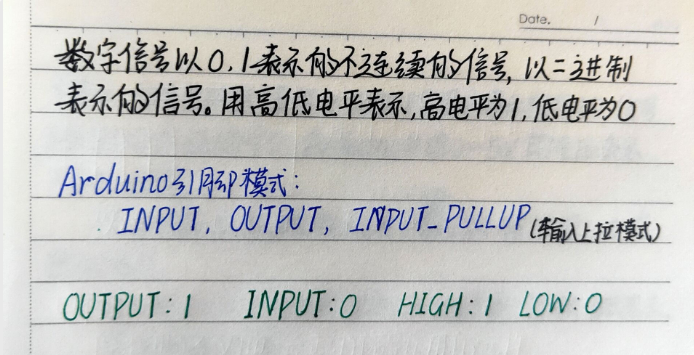 Date. /
数字信号以0,1表示的不连续的信号,以二进制
表示的信号。用高低电平表示,高电平为1,低电平为0
Arduino引脚模式:
INPUT, OUTPUT, INPUT_PULLUP(输入上拉模式)
OUTPUT:1 INPUT:0 HIGH:1 LOW:0